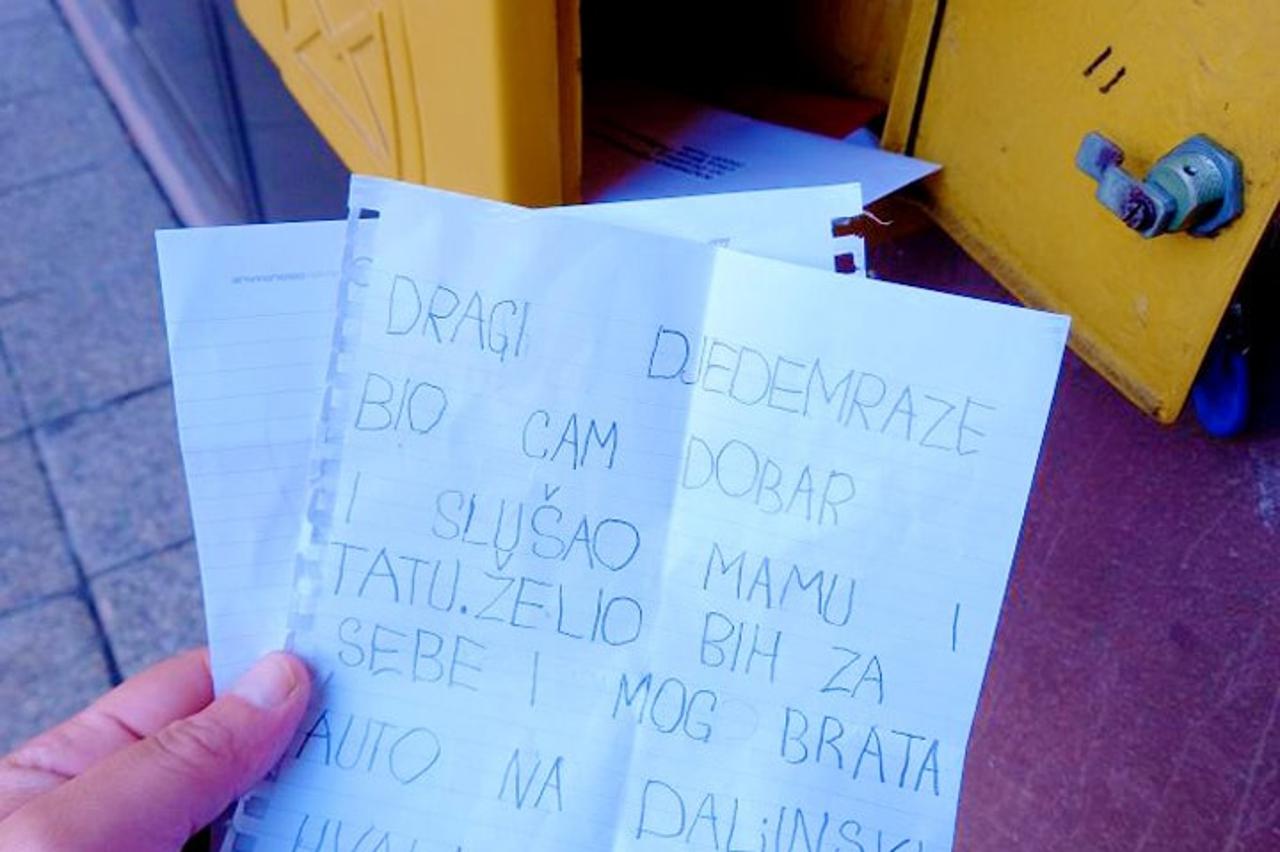 DRAGI DJEDEMRAZE
BIO CAM DOBAR
I SLUŠAO MAMU I
TATU. ŽELIO BIH ZA
SEBE I MOG BRATA
AUTO NA DALjINSKI